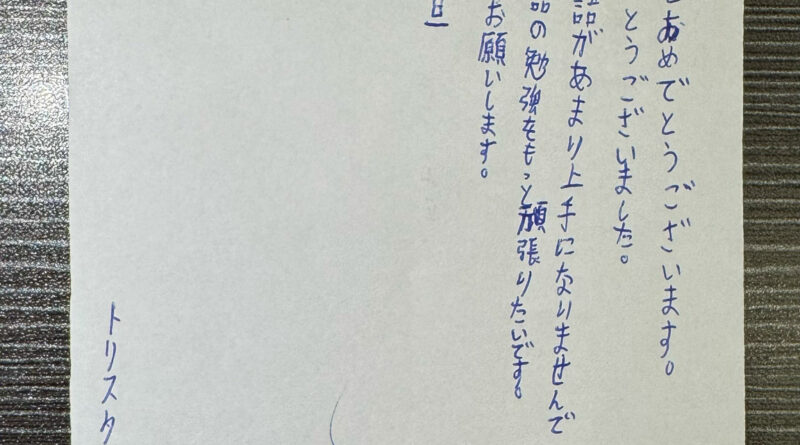 おめでとうございます。
とうございました。
語があまり上手になりませんで
語の勉強をもっと頑張りたいです。
お願いします。
日
トリスタ